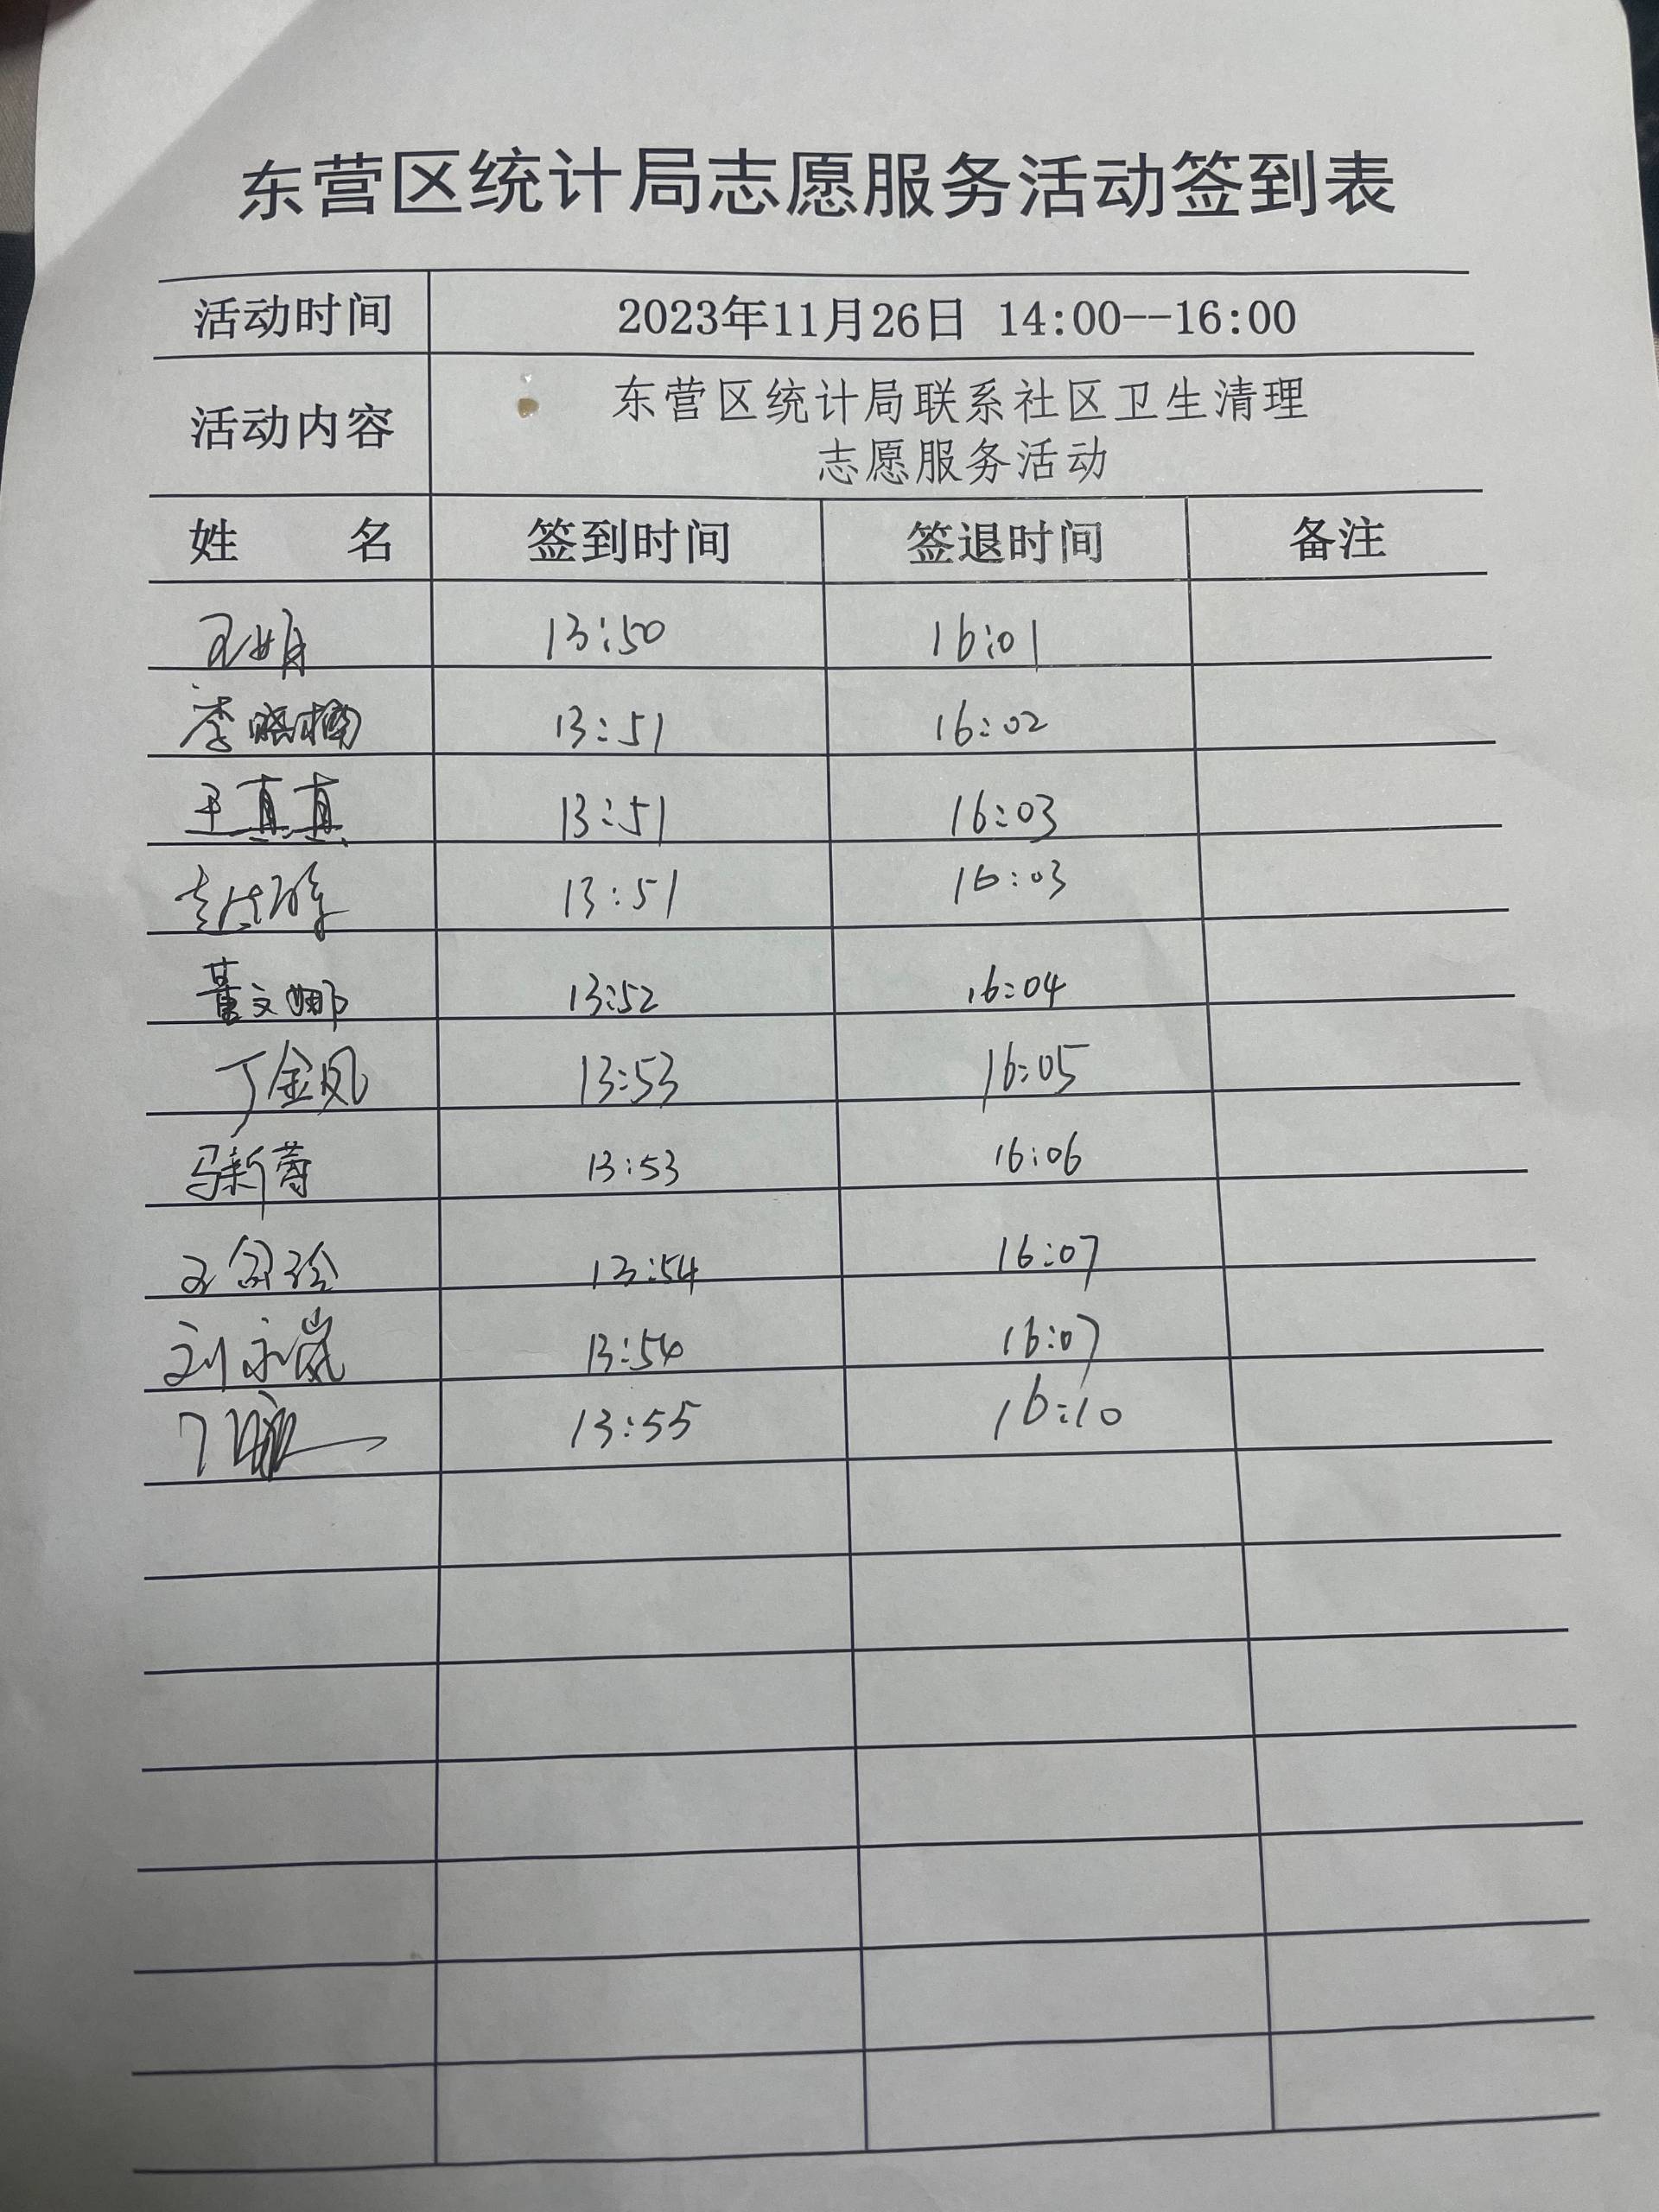 东营区统计局志愿服务活动签到表
活动时间 2023年11月26日 14:00--16:00
活动内容 东营区统计局联系社区卫生清理
志愿服务活动
姓 名 签到时间 签退时间 备注
王娟 13:50 16:01
李晓楠 13:51 16:02
王真真 13:51 16:03
13:51 16:03
董文娜 13:52 16:04
丁金凤 13:53 16:05
马新蕾 13:53 16:06
王 13:54 16:07
刘永岚 13:54 16:07
丁 13:55 16:10